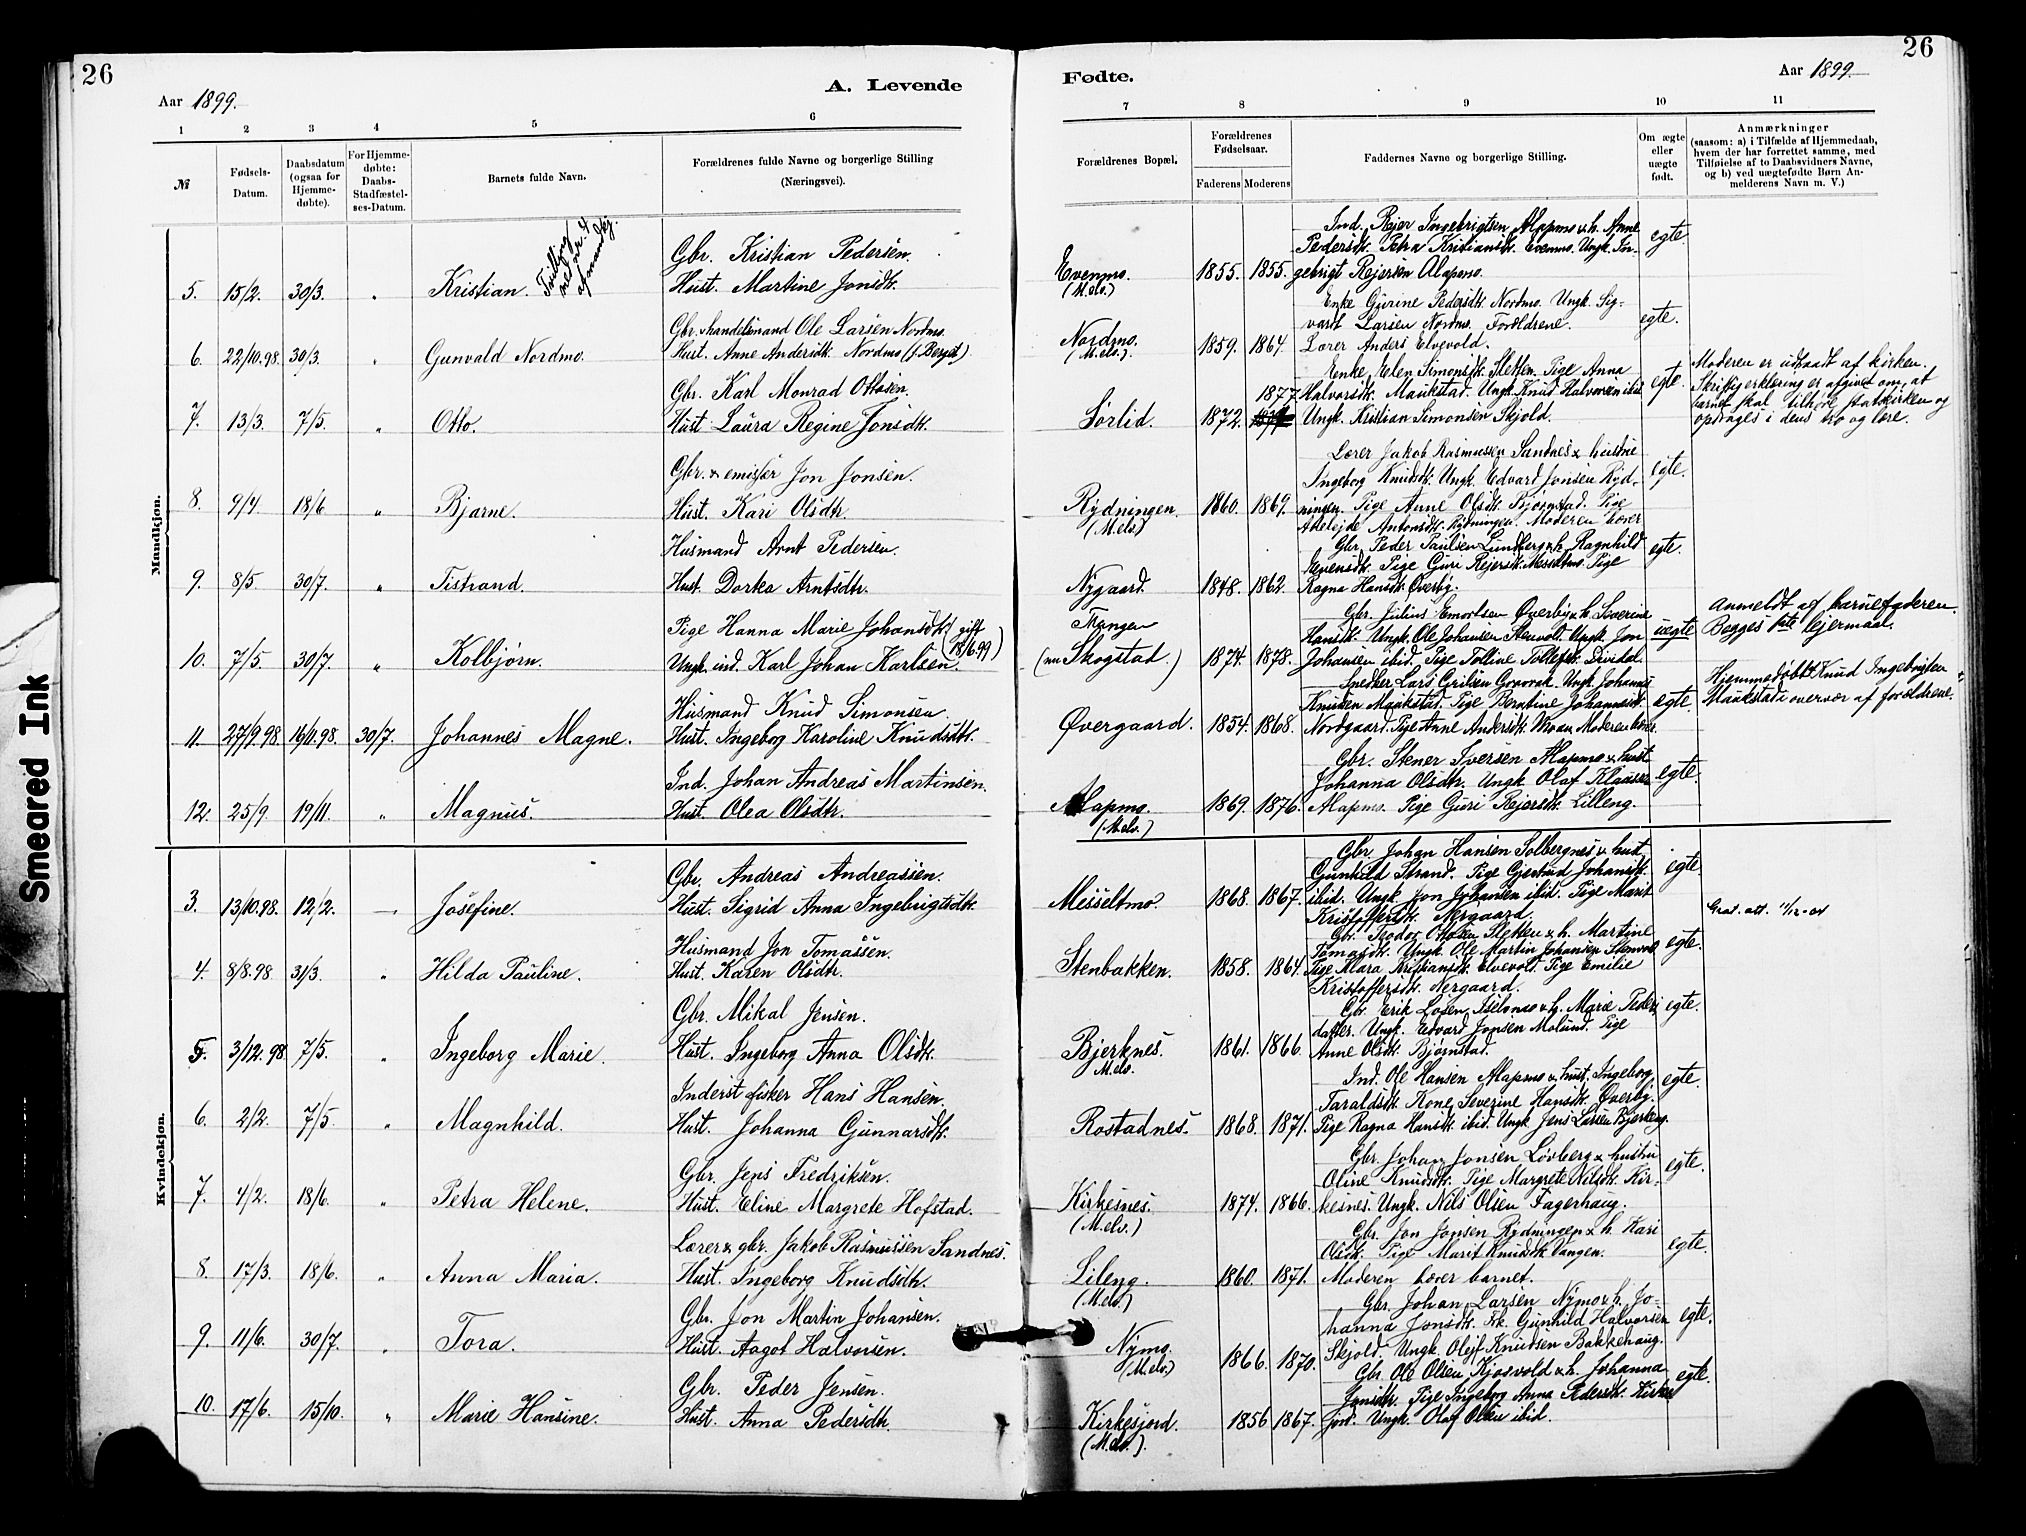 26
26
A. Levende
Fødte.
Aar 1899.
Aar 1899
1 2 3 4 5 6
7 8 9 10 11
№
Fødsels-Datum.
Daabsdatum (ogsaa for Hjemme-døbte).
For Hjemme-døbte: Daabs-Stadfæstel-ses-Datum.
Barnets fulde Navn.
Forældrenes fulde Navne og borgerlige Stilling
(Næringsvei).
Forældrenes Bopæl.
Forældrenes Fødselsaar.
Faderens Moderens
Faddernes Navne og borgerlige Stilling.
Om ægte eller uægte født.
Anmærkninger
(saasom: a) i Tilfælde af Hjemmedaab,
hvem der har forrettet samme, med
Tilføielse af to Daabsvidners Navne,
og b) ved uægtefødte Børn An-
melderens Navn m. V.)
Mandkjøn.
Gbr. Kristian Pedersen.
5. 15/2. 30/3. " Kristian. Hust. Martine Jonsdtr.
Tvilling med nr. 4
Evenmo. (M.elv.) 1855. 1855.
Ind. Rejer Ingebrigtsen Alapmo & h. Anne
Pedersdtr. Petra Kristiansdtr. Evenmo. Ungk. In-
gebrigt Rejersen Alapmo.
egte.
Gbr. & handelsmand Ole Larsen Nordmo.
6. 22/10.98. 30/3. " Gunvald Nordmo. Hust. Anne Andersdtr. Nordmo
Nordmo. (M.elv.) 1859. 1864.
Enke Gurine Pedersdtr. Nordmo. Ungk. Sig-
vardt Larsen Nordmo. Forældrene.
Lærer Anders Elvevold.
egte.
Gbr. Karl Monrad Ottosen.
7. 13/3. 7/5. " Otto. Hust. Laura Regine Jonsdtr.
Sørlid. 1872. 1877
Enke Elen Simonsdtr. Sletten. Pige Anna
Halvorsdtr. Maukstad. Ungk. Knud Halvorsen ibid
Ungk. Kristian Simonsen Skjold.
egte.
Moderen er udtraadt af kirken.
Skriftlig erklæring er afgivet om, at
barnet skal tilhøre statskirken og
opdrages i dens tro og lære.
Gbr. & emissær Jon Jonsen.
8. 9/4 18/6 " Bjarne. Hust. Kari Olsdtr.
Rydningen. (M.elv) 1860. 1869.
Lærer Jakob Rasmussen Sandnes & hustru
Ingeborg Knudsdtr. Ungk. Edvard Jonsen Ryd-
ningen. Pige Anne Olsdtr. Bjørnstad. Pige
Antonsdtr. Rydningen. Moderen bærer
egte.
Husmand Arnt Pedersen.
9. 8/5. 30/7. " Tistrand. Hust. Dorka Arntsdtr.
Nygaard. 1848. 1862.
Gbr. Peder Paulsen Lundberg & h. Ragnhild
Evensdtr. Pige Guri Rejersdtr. Messeltmo. Pige
Ragna Hansdtr. Øverby.
egte.
Pige Hanna Marie Johansdtr. (gift 18/6.99)
10. 7/5. 30/7. " Kolbjørn. Ungk. ind. Karl Johan Karlsen.
Trangen
(nu Skogstad.) 1874. 1878.
Gbr. Julius Emortsen Øverby & h. Severine
Hansdtr. Ungk. Ole Johansen Stenvolt. Ungk. Jon
Johansen ibid. Pige Tolline Tollefsdtr. Dividal.
uegte
Anmeldt af barnefaderen.
Begges 1ste lejermaal.
Husmand Knud Simonsen
11. 27/9.98. 16/11.98. 30/7. Johannes Magne. Hust. Ingeborg Karoline Knudsdtr.
Øvergaard. 1854. 1868.
Snedker Lars Ungk. Johannes
Knudsen Maukstad. Pige Berntine Johannesdtr
Nordgaard. Pige Anne Andersdtr. Moan. Moderen bærer
egte.
Hjemmedøbt af Knud Ingebrigtsen
Maukstad i overvær af forældrene.
Ind. Johan Andreas Martinsen.
12. 25/9. 19/11. " Magnus. Hust. Olea Olsdtr.
Alapmo. (M.elv.) 1869. 1876.
Gbr. Stener Iversen Alapmo & hust
Johanna Olsdtr. Ungk Olaf Klausen
Alapmo. Pige Guri Rejersdtr. Lilleng.
egte.
Kvindekjøn.
Gbr. Andreas Andreassen.
3. 13/10.98. 12/2. — Josefine. Hust. Sigrid Anna Ingebrigtsdtr.
Messeltmo. 1868. 1867.
Gbr. Johan Hansen Solbergnes & hust.
Gunhild Strand. Pige Gjertrud Johansdtr.
ibid. Ungk. Jon Johansen ibid. Pige Marit
Kristoffersdtr. Nergaard.
egte.
Grat. att. 11/12-04
Husmand Jon Tomassen.
4. 8/8.98. 31/3. " Hilda Pauline. Hust. Karen Olsdtr.
Stenbakken. 1858. 1864.
Gbr. Teodor Ottosen Sletten & h. Martine
Tomasdtr. Ungk. Ole Martin Johansen Stenvold
Pige Mara Kristiansdtr. Elvevold. Pige Emilie
Kristoffersdtr. Nergaard.
egte.
Gbr. Mikal Jensen.
5. 3/12.98 7/5. " Ingeborg Marie. Hust. Ingeborg Anna Olsdtr.
Bjerknes. M.elv. 1861. 1866.
Gbr. Erik & h. Marie Peders
datter. Ungk. Edvard Jonsen Molund. Pige
Anne Olsdtr. Bjørnstad.
egte.
Inderst fisker Hans Hansen.
6. 2/2. 7/5. " Magnhild. Hust. Johanna Gunnarsdtr.
Rostadnes. 1868. 1871.
Ind. Ole Hansen Alapmo & hust. Ingeborg
Taraldsdtr. Kone Severine Hansdtr. Øverby.
Pige Ragna Hansdtr. ibid. Ungk Jens Larsen Bjerkeng.
egte.
Gbr. Jens Fredriksen.
7. 4/2. 18/6. " Petra Helene. Hust. Eline Margrete Hofstad.
Kirkesnes. (M.elv.) 1874. 1866.
Gbr. Johan Jonsen Løvberg & hustru
Oline Knudsdtr. Pige Margrete Nilsdtr. Kir-
kesnes. Ungk. Nils Olsen Fagerhaug.
egte.
Lærer & gbr. Jakob Rasmussen Sandnes.
8. 17/3. 18/6. " Anna Maria. Hust. Ingeborg Knudsdtr.
Lileng. (M.elv.) 1860. 1871.
Gbr. Jon Jonsen Rydningen & h. Kari
Olsdtr. Pige Marit Knudsdtr. Vangen.
Moderen bærer barnet.
egte.
Gbr. Jon Martin Johansen.
9. 11/6. 30/7. " Tora. Hust. Aagot Halvorsen.
Nymo. (M.elv.) 1866. 1870.
Gbr. Johan Larsen Nymo & h. Jo-
hanna Jonsdtr. Frk. Gunhild Halvorsen
Skjold. Ungk. Olef Knudsen Bakkehaug.
egte.
Gbr. Peder Jensen.
10. 17/6. 15/10. " Marie Hansine. Hust. Anna Pedersdtr.
Kirkesjord. (M.elv.). 1856 1867.
Gbr. Ole Olsen Kjosvold & h. Johanna
Jonsdtr. Pige Ingeborg Anna Pedersdtr. Kirkes
jord. Ungk. Olaf Olsen ibid.
egte.
Smeared Ink